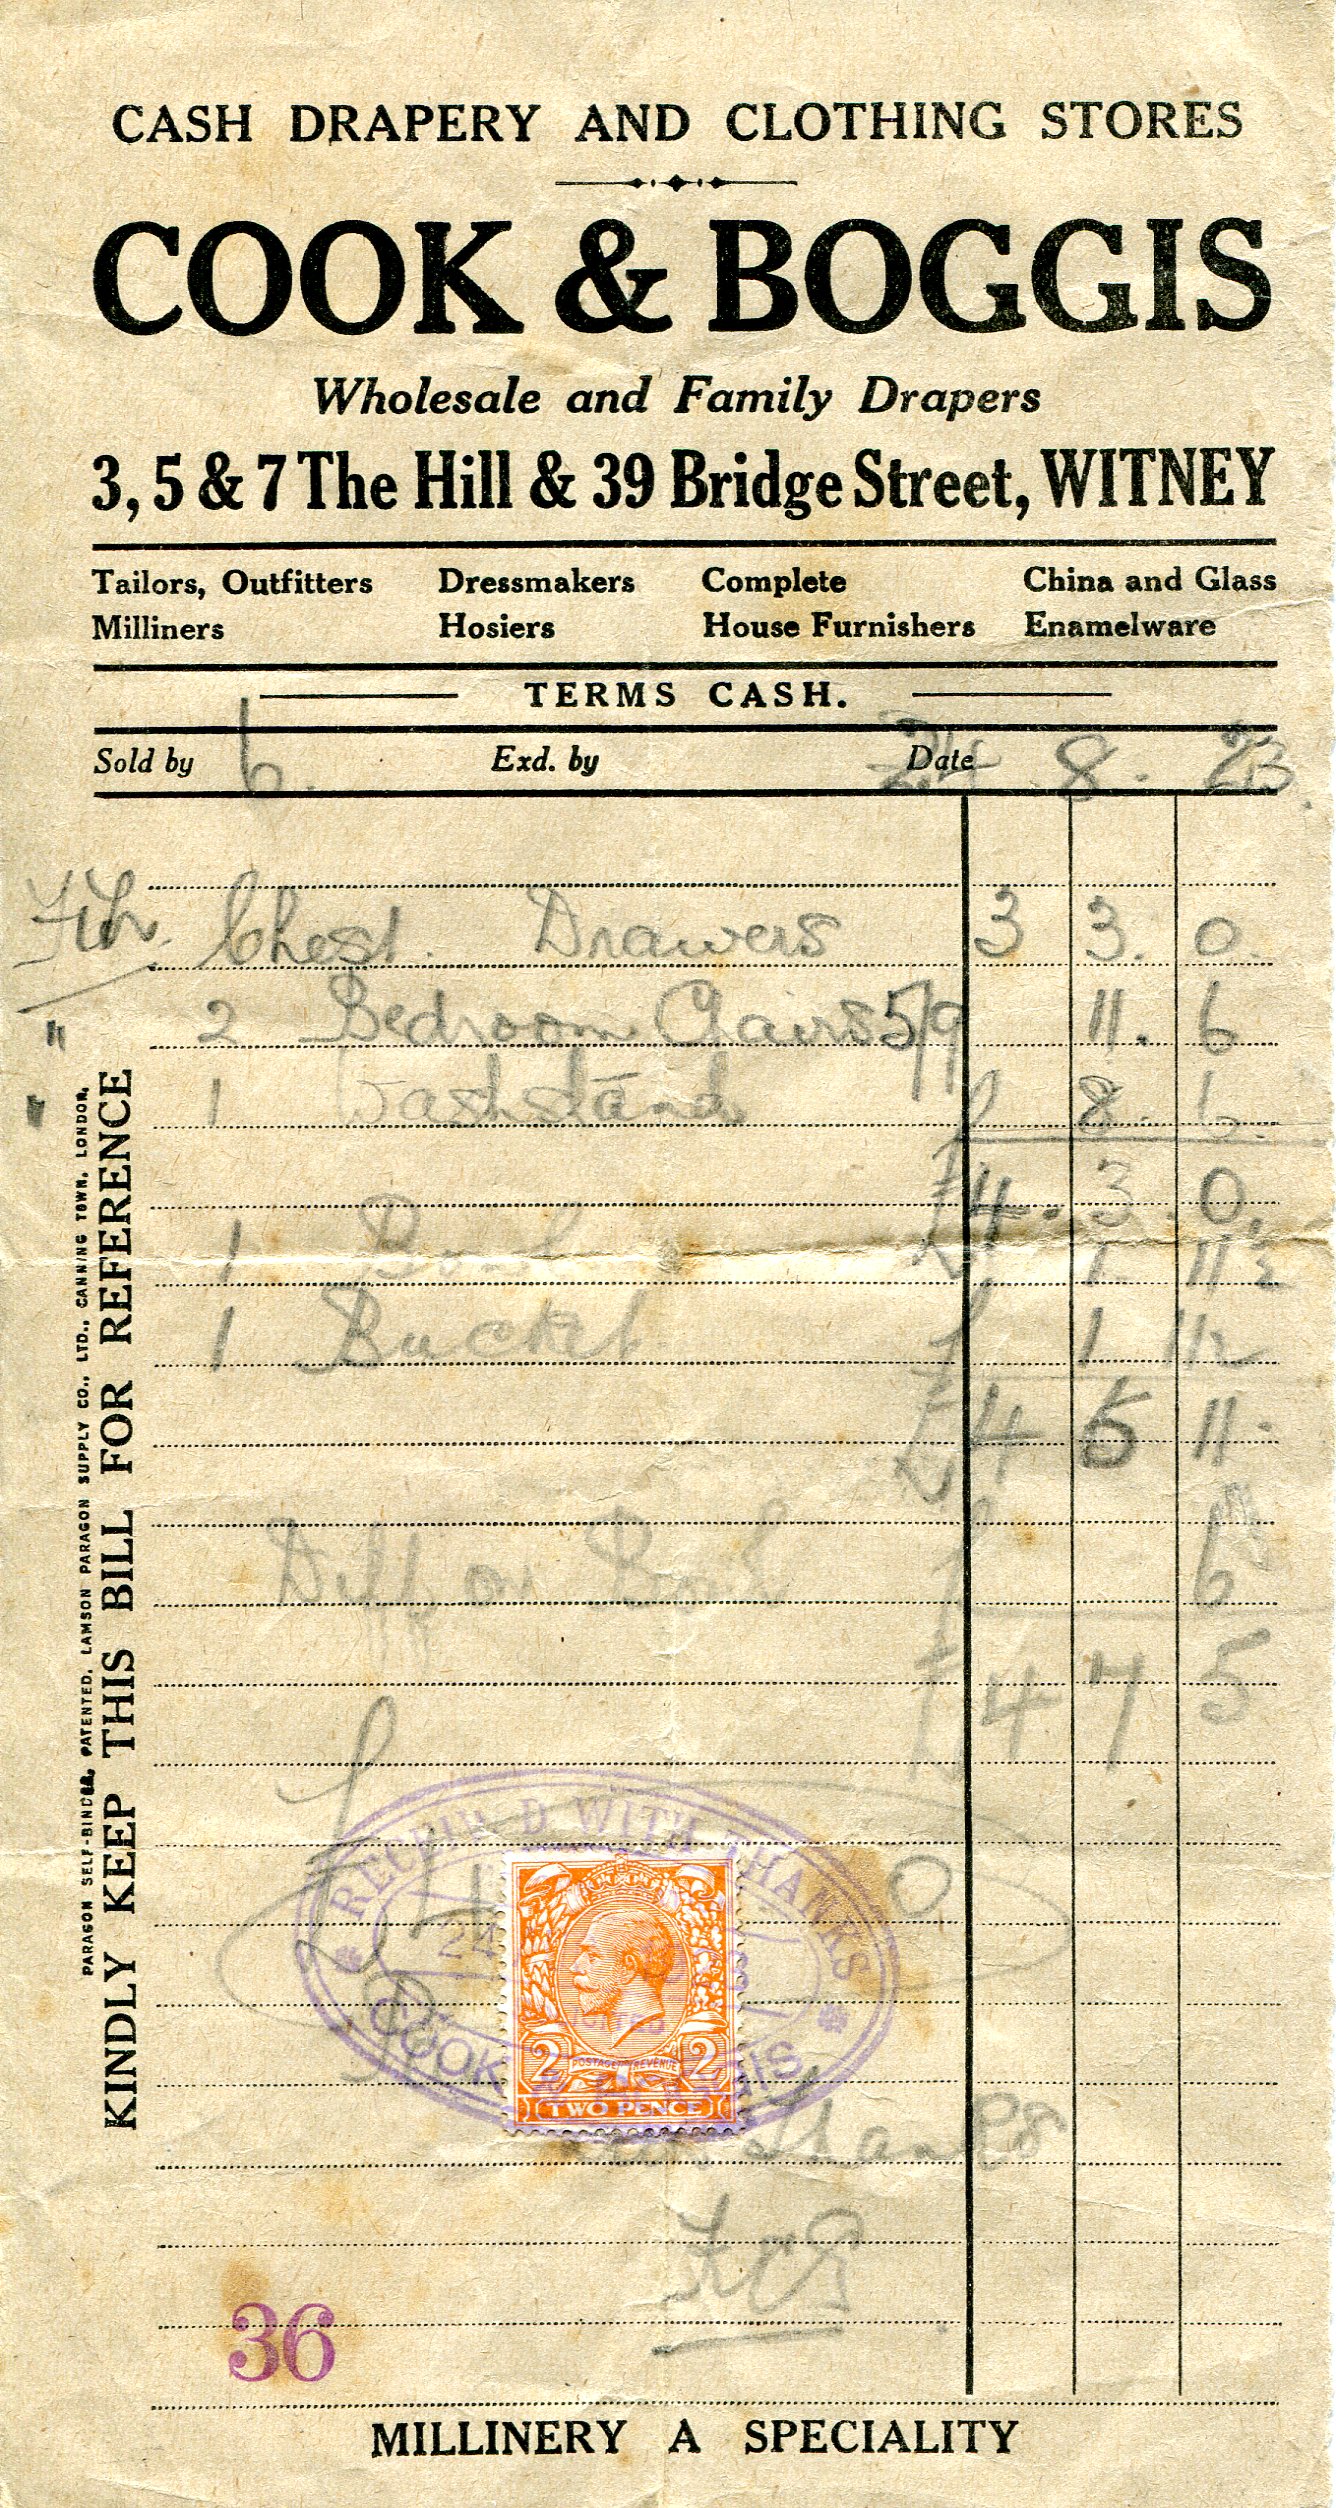 CASH DRAPERY AND CLOTHING STORES
COOK & BOGGIS
Wholesale and Family Drapers
3, 5 & 7 The Hill & 39 Bridge Street, WITNEY
Tailors, Outfitters Dressmakers Complete China and Glass
Milliners Hosiers House Furnishers Enamelware
TERMS CASH.
Sold by 6. Exd. by Date 24 8. 23.
Chest. Drawers 3 3. 0.
" 2 Bedroom Chairs 5/9 11. 6
" 1 Washstand 8. 6.
£4. 3. 0.
1 1 11½
1 Bucket 1 11½
£4 5 11
Diff on 6
£4 7 5
RECEIV'D WITH THANKS
24
COOK
2 POSTAGE REVENUE 2
TWO PENCE
Thanks
36
MILLINERY A SPECIALITY
KINDLY KEEP THIS BILL FOR REFERENCE
PARAGON SELF-BINDER, PATENTED. LAMSON PARAGON SUPPLY CO., LTD., CANNING TOWN, LONDON.